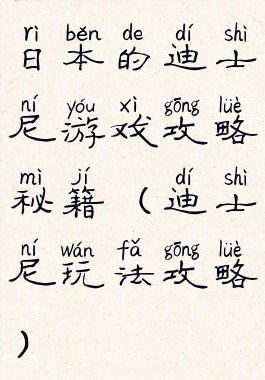 rì běn de dí shì
日本的迪士
ní yóu xì gōng lüè
尼游戏攻略
mì jí dí shì
秘籍（迪士
ní wán fǎ gōng lüè
尼玩法攻略
）